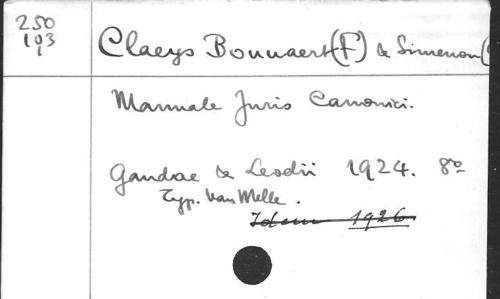 250
193
1
Claeys Bonnaert (F) & Simenon (
Manuale Juris Canonici.
Gandae & Leodii 1924. 8vo
Typ. Van Melle.
Idem 1926